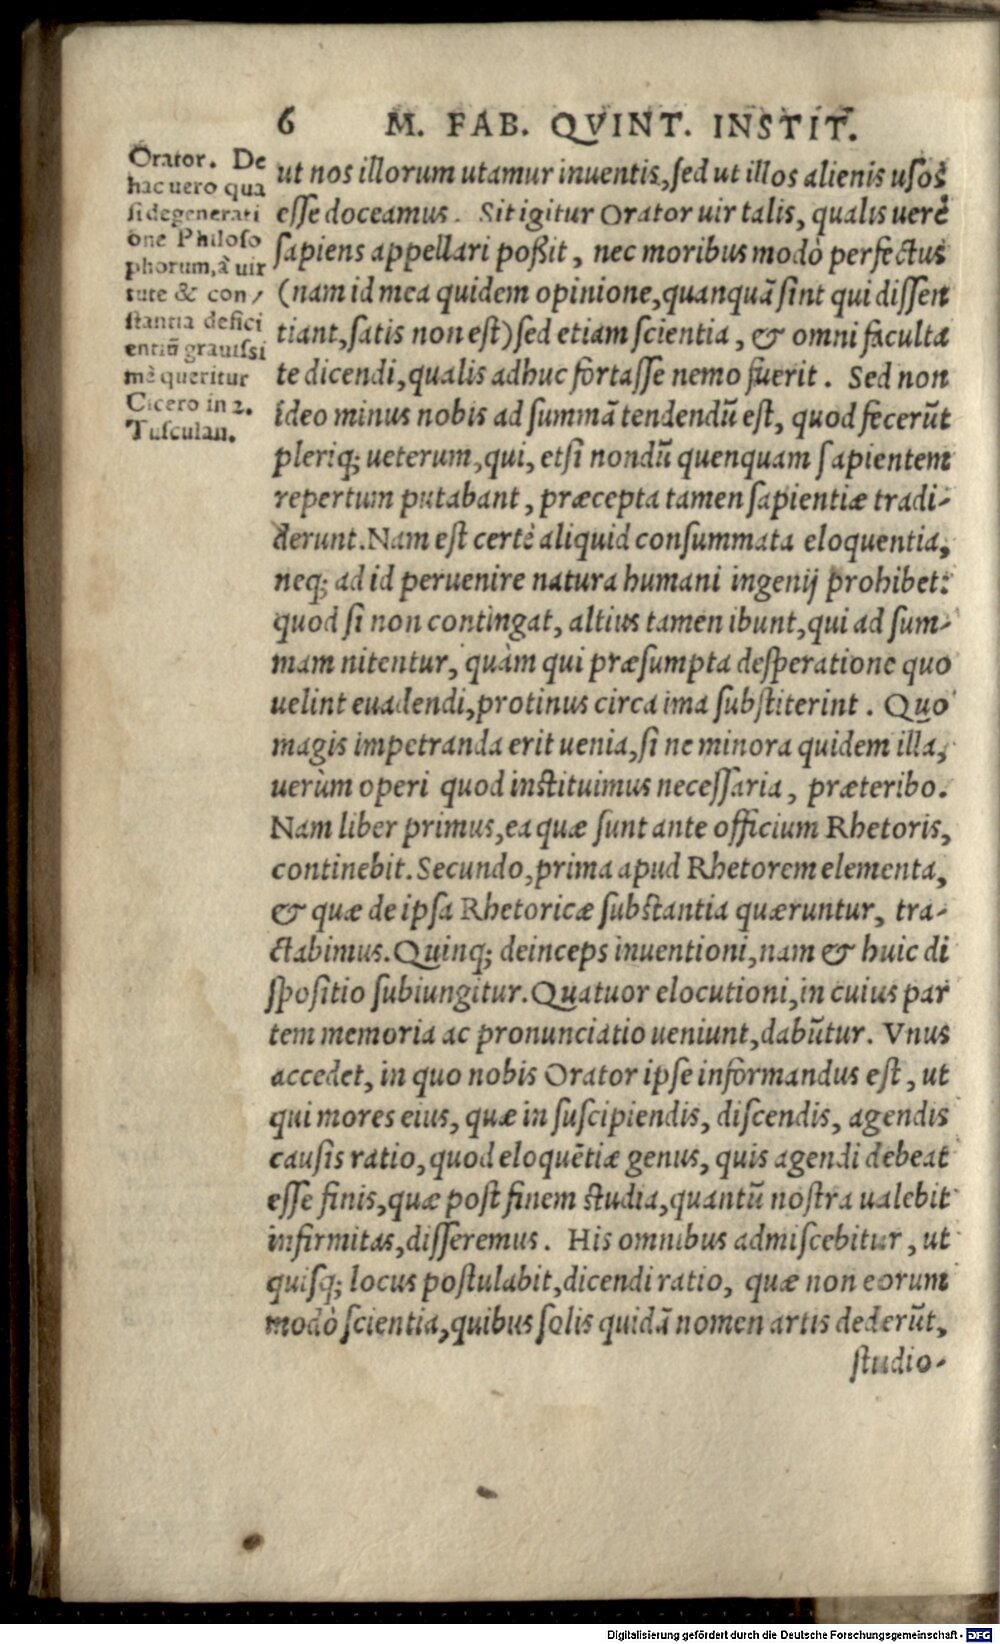 6 M. FAB. QVINT. INSTIT.
Orator. De
hac uero qua
si degenerati
one Philoso
phorum, à uir
tute & con/
stantia defici
entiū grauissi
mè queritur
Cicero in 2.
Tusculan.
ut nos illorum utamur inuentis, sed ut illos alienis usos
esse doceamus. Sit igitur Orator uir talis, qualis uerè
sapiens appellari poßit, nec moribus modò perfectus
(nam id mea quidem opinione, quanquā sint qui dissen
tiant, satis non est) sed etiam scientia, & omni faculta
te dicendi, qualis adhuc fortasse nemo fuerit. Sed non
ideo minus nobis ad summā tendendū est, quod fecerūt
pleriq; ueterum, qui, etsi nondū quenquam sapientem
repertum putabant, præcepta tamen sapientiæ tradi-
derunt. Nam est certè aliquid consummata eloquentia,
neq; ad id peruenire natura humani ingenij prohibet:
quod si non contingat, altius tamen ibunt, qui ad sum-
mam nitentur, quàm qui præsumpta desperatione quo
uelint euadendi, protinus circa ima substiterint. Quo
magis impetranda erit uenia, si ne minora quidem illa,
uerùm operi quod instituimus necessaria, præteribo.
Nam liber primus, ea quæ sunt ante officium Rhetoris,
continebit. Secundo, prima apud Rhetorem elementa,
& quæ de ipsa Rhetoricæ substantia quæruntur, tra-
ctabimus. Quinq; deinceps inuentioni, nam & huic di
spositio subiungitur. Quatuor elocutioni, in cuius par
tem memoria ac pronunciatio ueniunt, dabūtur. Vnus
accedet, in quo nobis Orator ipse informandus est, ut
qui mores eius, quæ in suscipiendis, discendis, agendis
causis ratio, quod eloquētiæ genus, quis agendi debeat
esse finis, quæ post finem studia, quantū nostra ualebit
infirmitas, disseremus. His omnibus admiscebitur, ut
quisq; locus postulabit, dicendi ratio, quæ non eorum
modò scientia, quibus solis quidā nomen artis dederūt,
studio-
Digitalisierung gefördert durch die Deutsche Forschungsgemeinschaft - DFG